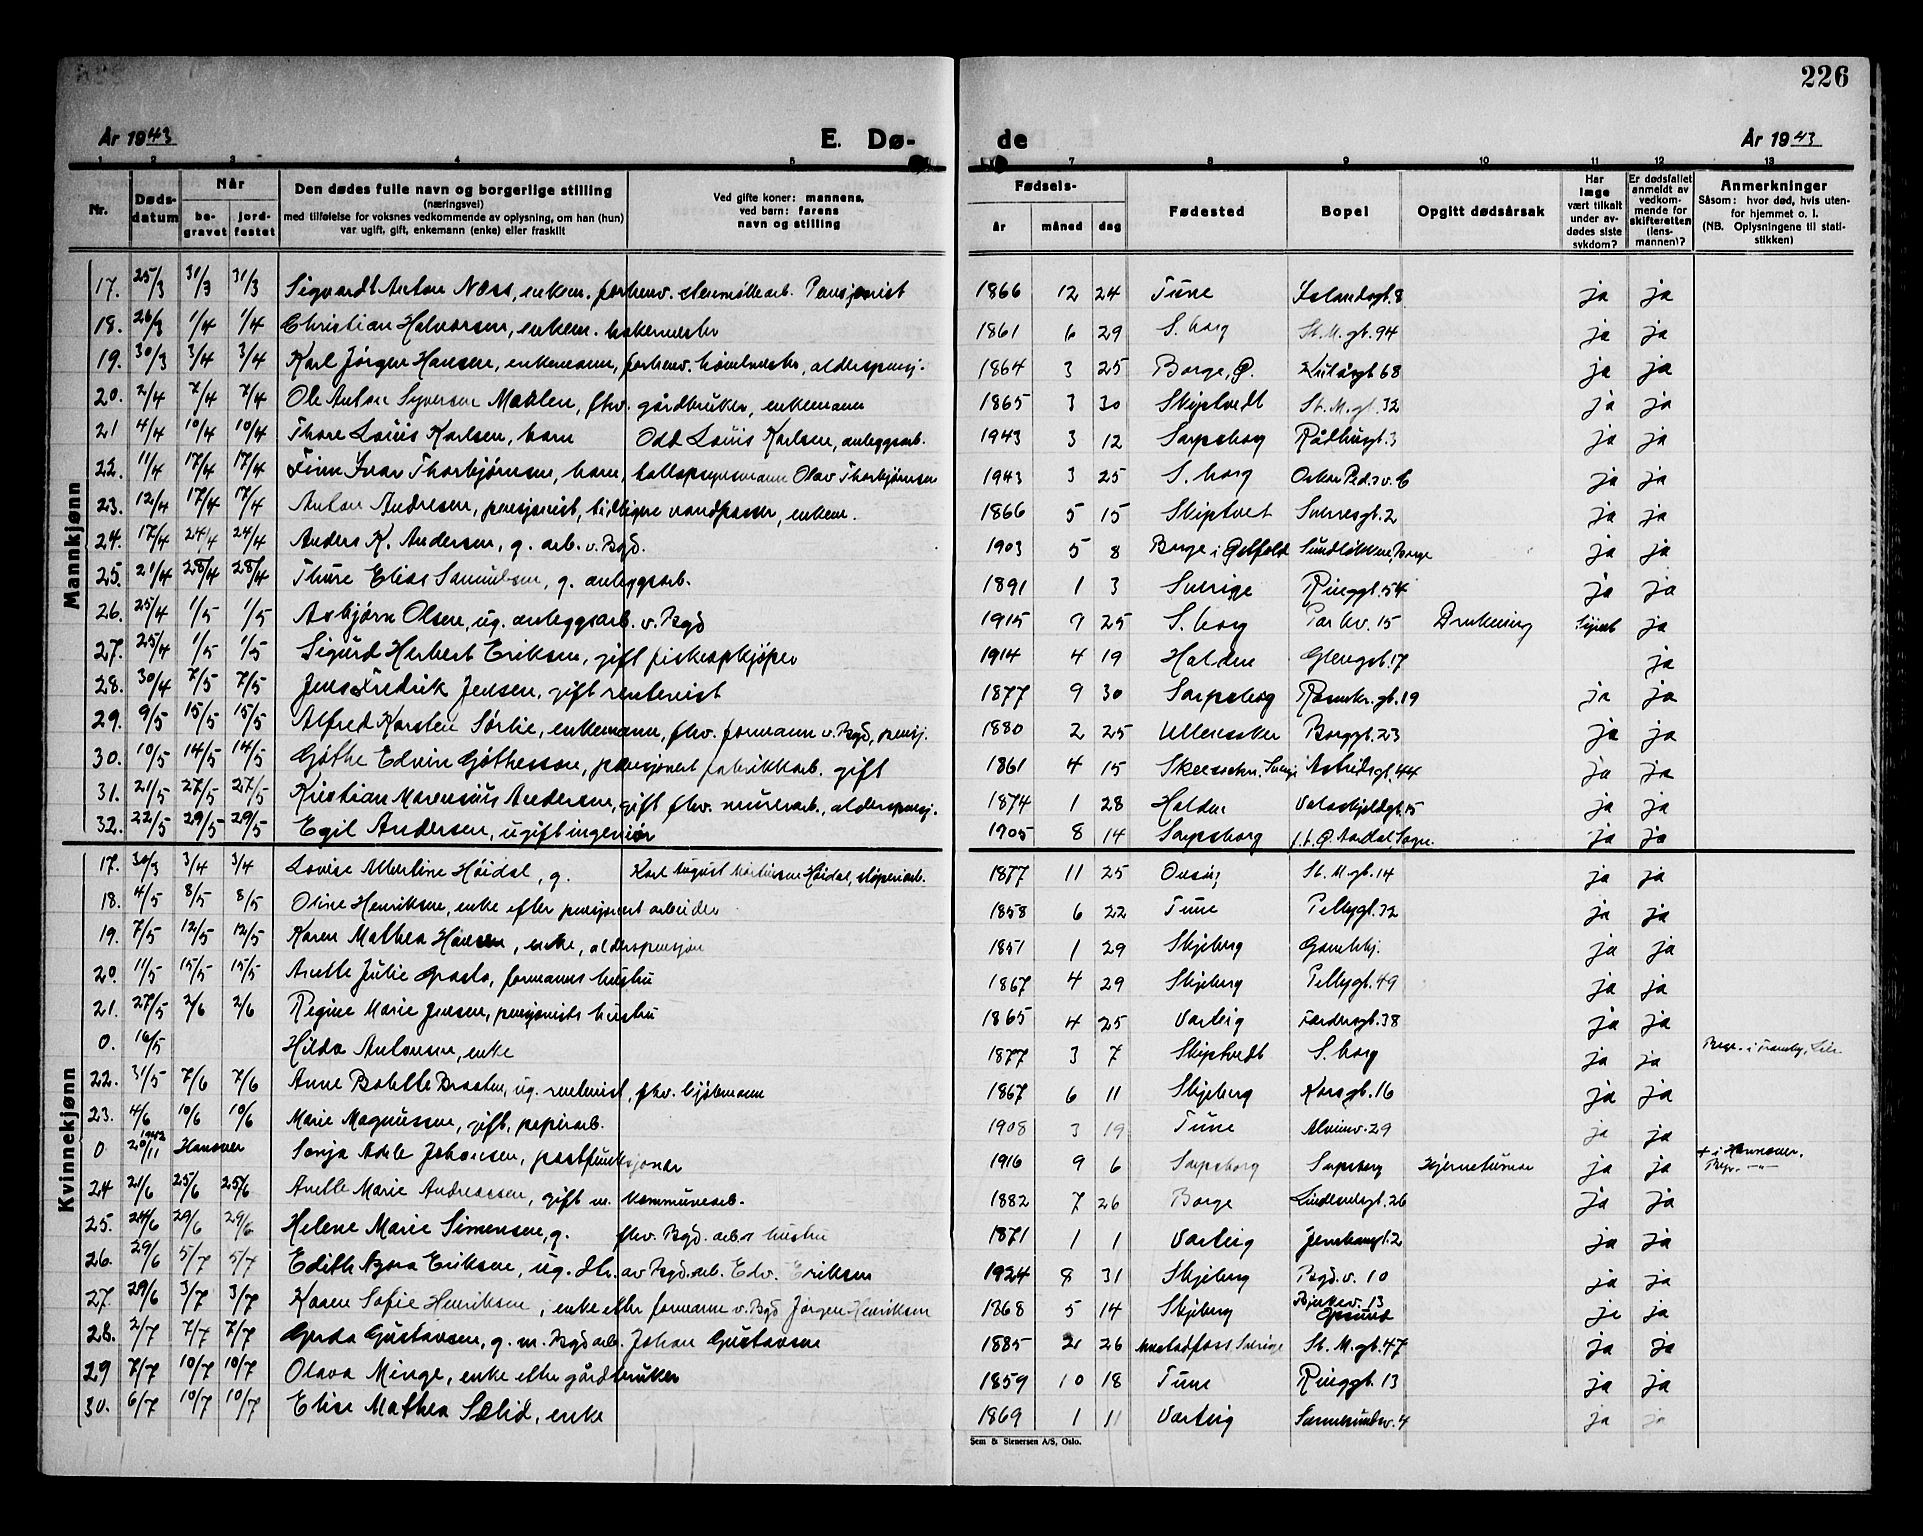 226
År 1943 E. Dø- de År 1943
1 2 3 4 5 7 8 9 10 11 12 13
Nr. Døds-datum Når be-gravet jord-festet Den dødes fulle navn og borgerlige stilling (næringsvei) med tilføielse for voksnes vedkommende av oplysning, om han (hun) var ugift, gift, enkemann (enke) eller fraskilt Ved gifte koner: mannens, ved barn: farens navn og stilling Fødsels- år måned dag Fødested Bopel Opgitt dødsårsak Har læge vært tilkalt under av-dødes siste sykdom? Er dødsfallet anmeldt av vedkom-mende for skifteretten (lens-mannen)? Anmerkninger Såsom: hvor død, hvis uten-for hjemmet o. l. (NB. Oplysningene til stati-stikken)
Mannkjønn
17. 25/3 31/3 31/3 Sigvardt Anton Næss, enkem, forhenv. Pensjonist 1866 12 24 Tune 8 ja ja
18. 26/3 1/4 1/4 Christian Halvorsen, enkem. bakermester 1861 6 29 S.borg St. M. gt. 94 ja ja
19. 30/3 3/4 3/4 Karl Jørgen Hansen, enkemann, forhenv. alderspensj. 1864 3 25 Borge, Ø. 68 ja ja
20. 2/4 7/4 7/4 Ole Anton Syversen Mæhlen, fhv. gårdbruker, enkemann 1865 3 30 Skiptvedt St. M. gt. 32 ja ja
21 4/4 10/4 10/4 Thore Louis Karlsen, barn Odd Louis Karlsen, anleggsarb. 1943 3 12 Sarpsborg Rådhusgt. 3 ja ja
22. 11/4 17/4 17/4 Finn Ivar Thorbjørnsen, barn, Olav Thorbjørnsen 1943 3 25 S.borg Oskar Ped.s v. 6 ja ja
23. 12/4 17/4 17/4 Anton Andresen, pensjonist, tidligere vandpasser, enkem. 1866 5 15 Skiptvet Sverresgt. 2 ja ja
24. 17/4 24/4 24/4 Anders K. Andersen, g. arb. v. Bgd. 1903 5 8 Borge i Østfold Sundløkken, Borge ja ja
25. 21/4 28/4 28/4 Thure Elias Samuelsen, g. anleggsarb. 1891 1 3 Sverige Ringgt. 54 ja ja
26. 25/4 1/5 1/5 Asbjørn Olsen, ug. anleggsarb. v. Bgd 1915 9 25 S.borg Parkv. 15 Drukning ja
27. 25/4 1/5 1/5 Sigurd Herbert Eriksen, gift fiskeopkjøper 1914 4 19 Halden Glengsgt. 17 ja
28. 30/4 7/5 7/5 Jens Fredrik Jensen, gift rentenist 1877 9 30 Sarpsborg Rosenkr. gt. 19 ja ja
29. 9/5 15/5 15/5 Alfred Karsten Sørlie, enkemann, fhv. formann v. Bgd, pensj. 1880 2 25 Ullensaker Borggt. 23 ja ja
30. 10/5 14/5 14/5 Gøthe Edvin Gøthesson, pensjonert fabrikkarb. gift 1861 4 15 Astridsgt. 44 ja ja
31. 21/5 27/5 27/5 Kristian Marensius Andersen, gift fhv. murerarb., alderspensj. 1874 1 28 Halden Valaskjoldgt. 15 ja ja
32. 22/5 29/5 29/5 Egil Andersen, ugift ingeniør 1905 8 14 Sarpsborg f. t. Ø. Aardal, Sogn. ja ja
Kvinnekjønn
17. 30/3 3/4 3/4 Lovise Albertine Høidal, g. Karl August Martinsen Høidal, sliperiarb. 1877 11 25 Onsøy St. M. gt. 14 ja ja
18. 4/5 8/5 8/5 Oline Henriksen, enke efter pensjonert arbeider 1858 6 22 Tune Pellygt. 32 ja ja
19. 7/5 12/5 12/5 Karen Mathea Hansen, enke, alderspensjon 1851 1 29 Skjeberg Gamlehj. ja ja
20. 11/5 15/5 15/5 Anette Julie Graslo, formanns hustru 1867 4 29 Skjeberg Pellygt. 49 ja ja
21. 27/5 2/6 2/6 Regine Marie Jensen, pensjonists hustru 1865 4 25 Varteig Færdersgt. 38 ja ja
0. 16/5 Hilda Antonsen, enke 1877 3 7 Skiptvedt S.borg ja ja Begr. i
22. 31/5 7/6 7/6 Anne Bolette Braaten, ug. rentenist, fhv. kjøbmann 1867 6 11 Skjeberg Korsgt. 16 ja ja
23. 4/6 10/6 10/6 Marie Magnussen, gift, papirarb. 1908 3 19 Tune Alveimv. 29 ja ja
0 1942 20/11 Hanover Sonja Adele Johansen, postfunksjonær 1916 9 6 Sarpsborg Sarpsborg Hjernetumor ja ja + i Hannover. Begr. —"—
24 21/6 25/6 25/6 Anette Marie Andreassen, gift m. kommunearb. 1882 7 26 Borge Lindemansgt. 26 ja ja
25. 24/6 29/6 29/6 Helene Marie Simensen, g. fhv. Bgd. arb.s hustru 1871 1 1 Varteig 2 ja ja
26. 29/6 5/7 5/7 Edith Azora Eriksen, ug. dtr. av Bgd.arb. Edv. Eriksen 1924 8 31 Skjeberg Bgd. v. 10 ja ja
27. 29/6 3/7 3/7 Karen Sofie Henriksen, enke efter formann v. Bgd Jørgen Henriksen 1868 5 14 Skjeberg Bjerkev. 13 Opsund ja ja
28. 2/7 7/7 7/7 Gerda Gustavsen, g. m. Bgd arb. Johan Gustavsen 1885 2 26 Sverige St. M. gt. 47 ja ja
29 7/7 10/7 10/7 Olava Minge, enke efter gårdbruker 1859 10 18 Tune Ringgt. 13 ja ja
30. 6/7 10/7 10/7 Elise Mathea Sælid, enke 1869 1 11 Varteig Sannesundsv. 4 ja ja
Sem & Stenersen A/S, Oslo.